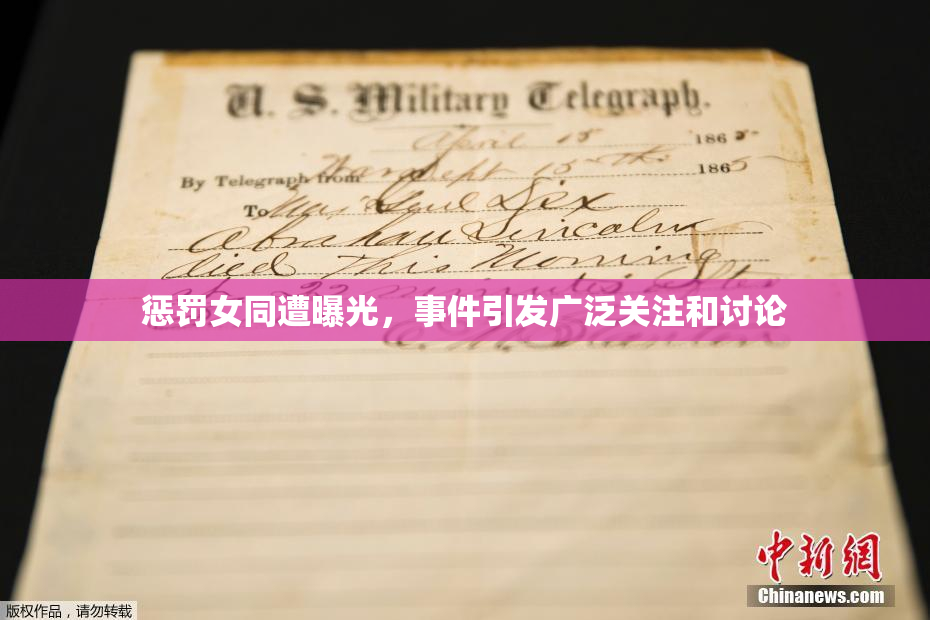 U. S. Military Telegraph.
April 15 1865
By Telegraph from War Dept 15th 1865
To Maj Genl Dix
Abraham Lincoln
died This Morning
at 22 minutes after
惩罚女同遭曝光，事件引发广泛关注和讨论
中新网
Chinanews.com
版权作品，请勿转载